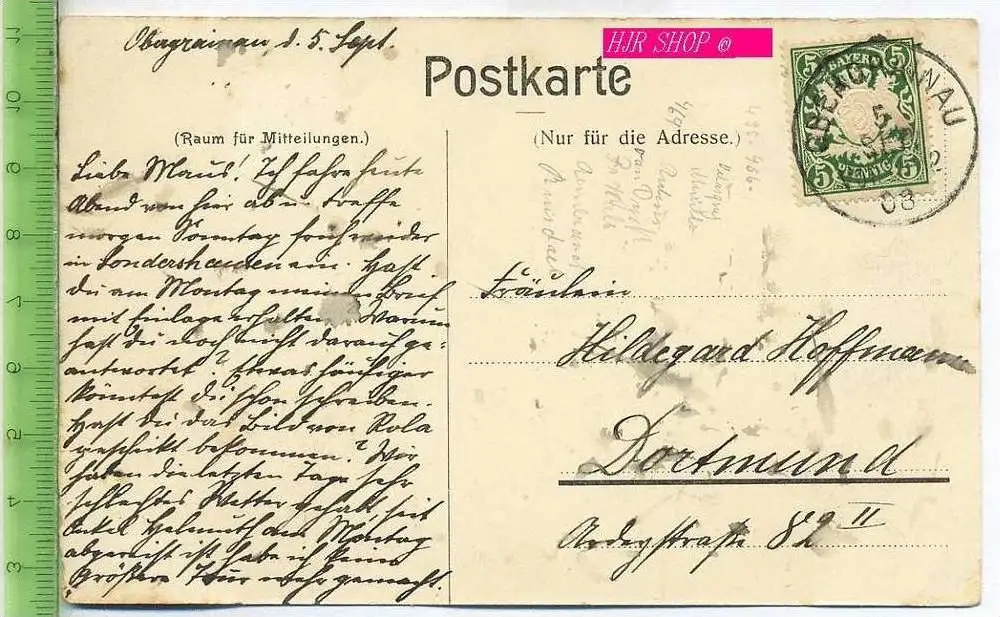 Obergrainau d. 5. Sept.
HJR SHOP ©
Postkarte
(Raum für Mitteilungen.)
(Nur für die Adresse.)
BAYERN
5 5
5 5
PFENNIG
OBERGRAINAU
5 SEP
08
Liebe Maus! Ich fahre heute
Abend von hier ab u. treffe
morgen Sonntag früh wieder
in Sondershausen ein. Hast
du am Montag meinen Brief
mit Einlage erhalten? Warum
hast du noch nicht darauf ge-
antwortet? Etwas häufiger
könntest du schon schreiben.
Hast du das Bild von Rola
geschickt bekommen? Wir
haben die letzten Tage sehr
schlechtes Wetter gehabt, seit
Onkel Helmuth am Montag
abgereist ist habe ich keine
größere Tour mehr gemacht.
Fräulein
Hildegard Hoffmann
Dortmund
Ardeystraße 82 II